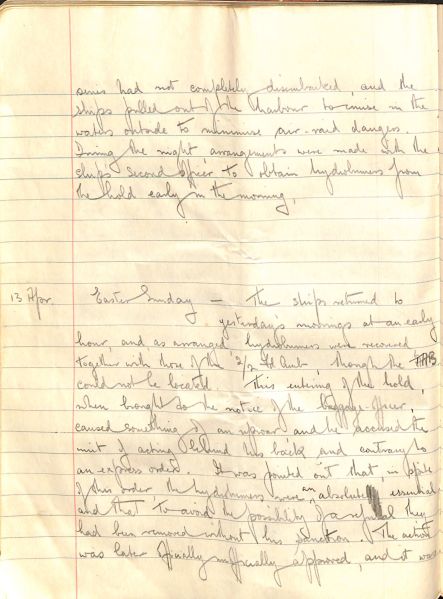 had not completely disembarked, and the
ships pulled out of the harbour to cruise in the
waters outside to minimise air-raid dangers.
During the night, arrangements were made with the
ship's second officer to obtain hydshmers from
the hold early in the morning.
13 Apr. Easter Sunday — The ships returned to
yesterday's moorings at an early
hour and as arranged hydshmers were recovered
together with those of the 3/2 Fd Amb, though the
could not be located. This entering of the hold,
when brought to the notice of the baggage-officer,
caused something of an uproar and he accused the
unit of acting behind his back and contrary to
an express order. It was pointed out that, in spite
of this order the hydshmers were an absolute essential
and that to avoid the possibility of a refusal they
had been removed without his sanction. The action
was later officially unofficially approved, and it was